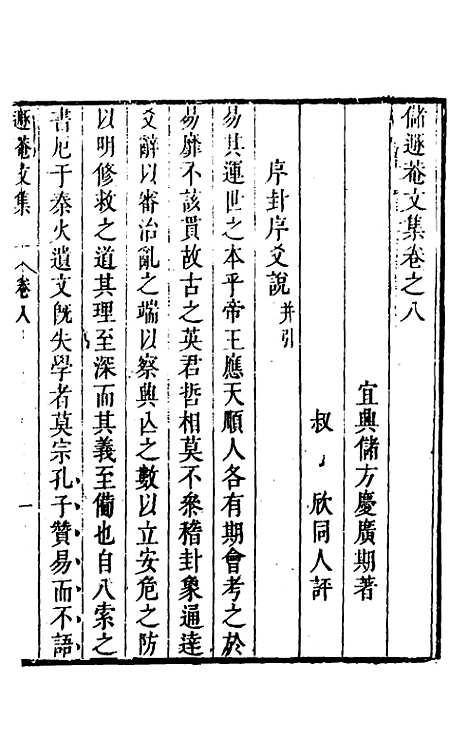 儲遯菴文集卷之八
宜興儲方慶廣期著
叔 欣同人評
序卦序爻說并引
易其運世之本乎帝王應天順人各有期會考之於
易靡不該貫故古之英君哲相莫不叅稽卦象通達
爻辭以審治亂之端以察興亾之數以立安危之防
以明修救之道其理至深而其義至僃也自八索之
書厄于秦火遺文旣失學者莫宗孔子贊易而不語
遯菴文集 卷八 一